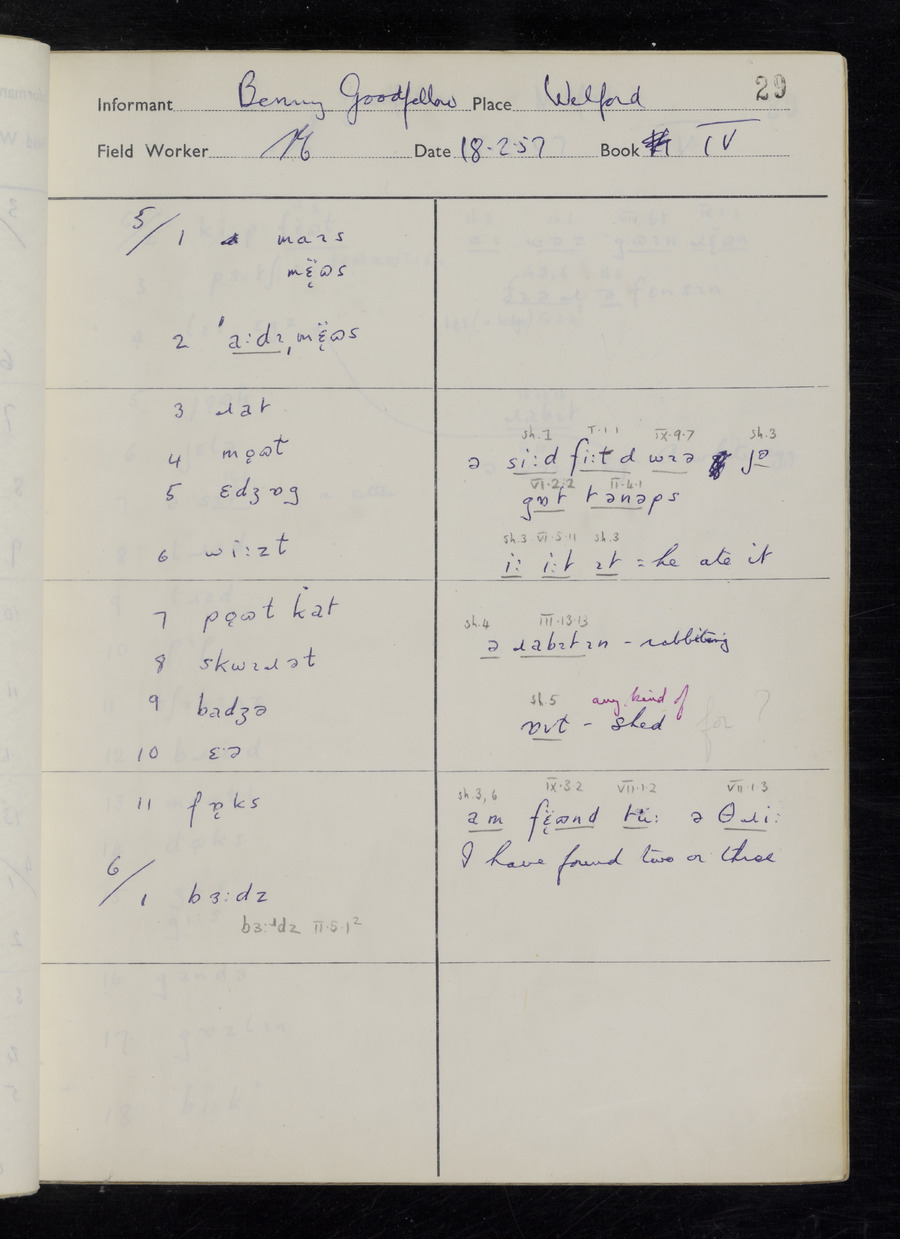 29
Informant Benny Goodfellow Place Welford
Field Worker Date 18-2-57 Book IV
5/1 maɪs
mɛ̈ʊs
2 ˈa:dɪˌmɛ̈ʊs
3 ɹat
4 mɒ̜ʊt
5 ɛdʒɒg
6 wi:zt
7 pɒ̜ʊt kat
8 skwɪɹət
9 badʒə
10 ɛə
11 fɒ̜ks
6/1 bɜ:dz
bɜ:ɹdz II·5·1²
sh.1 I·1·1 IX·9·7 sh.3
ə si:d fi:t d wɪə jə
VI·2·2 II·4·1
gɒt tənəps
sh.3 VI·5·11 sh.3
i: i:t ɪt = he ate it
sh.4 III·13·13
ə ɹabɪtɪn - rabbiting
sh.5 any kind of
ɒvt - shed for ?
sh.3,6 IX·3·2 VII·1·2 VII·1·3
am fɛ̈ʊnd tü: ə θɹi:
I have found two or three